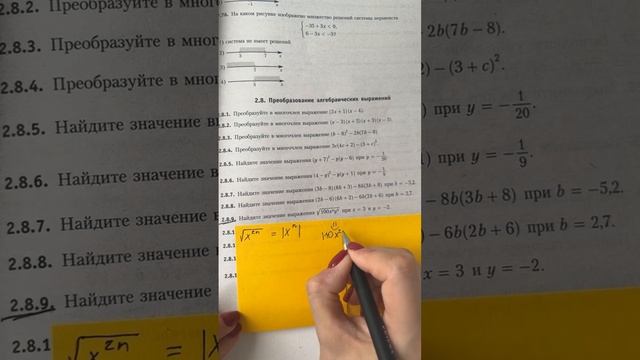 2.7.8. На каком рисунке изображено множество решений системы неравенств
−35 + 5x < 0,
6 − 3x < −3?
1) система не имеет решений
2)
3 7 x
3)
7 x
4)
3 x
2.8. Преобразование алгебраических выражений
2.8.1. Преобразуйте в многочлен выражение
2.8.2. Преобразуйте в многочлен выражение
2.8.3. Преобразуйте в многочлен выражение (b − 8)² − 2b(7b − 8).
2.8.4. Преобразуйте в многочлен выражение − (3 + c)².
2.8.5. Найдите значение выражения (y + 7)² − y(y − 6) при y = −1/20.
2.8.6. Найдите значение выражения (4 − y)² − y(y + 1) при y = −1/9.
2.8.7. Найдите значение выражения (3b − 8)(8b + 3) − 8b(3b + 8) при b = −5,2.
2.8.8. Найдите значение выражения (2b − 6)(6b + 2) − 6b(2b + 6) при b = 2,7.
2.8.9. Найдите значение выражения при x = 3 и y = −2.
2.8.1
2.8.1
2.8.1
√x²ⁿ = |xⁿ|
2.8.2. Преобразуйте в мног
2.8.3. Преобразуйте в мног
2.8.4. Преобразуйте в мног
2.8.5. Найдите значение в
2.8.6. Найдите значение
2.8.7. Найдите значение
2.8.8. Найдите значение
2.8.9. Найдите значение
2.8.1
√x²ⁿ = |x
− 2b(7b − 8).
) − (3 + c)².
) при y = −1/20.
) при y = −1/9.
− 8b(3b + 8) при b = −5,2.
) − 6b(2b + 6) при b = 2,7.
x = 3 и y = −2.